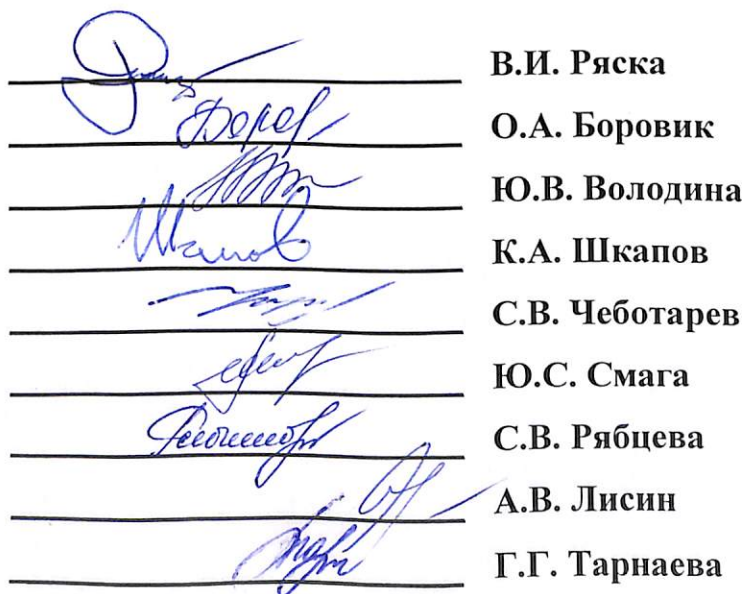 В.И. Ряска
О.А. Боровик
Ю.В. Володина
К.А. Шкапов
С.В. Чеботарев
Ю.С. Смага
С.В. Рябцева
А.В. Лисин
Г.Г. Тарнаева